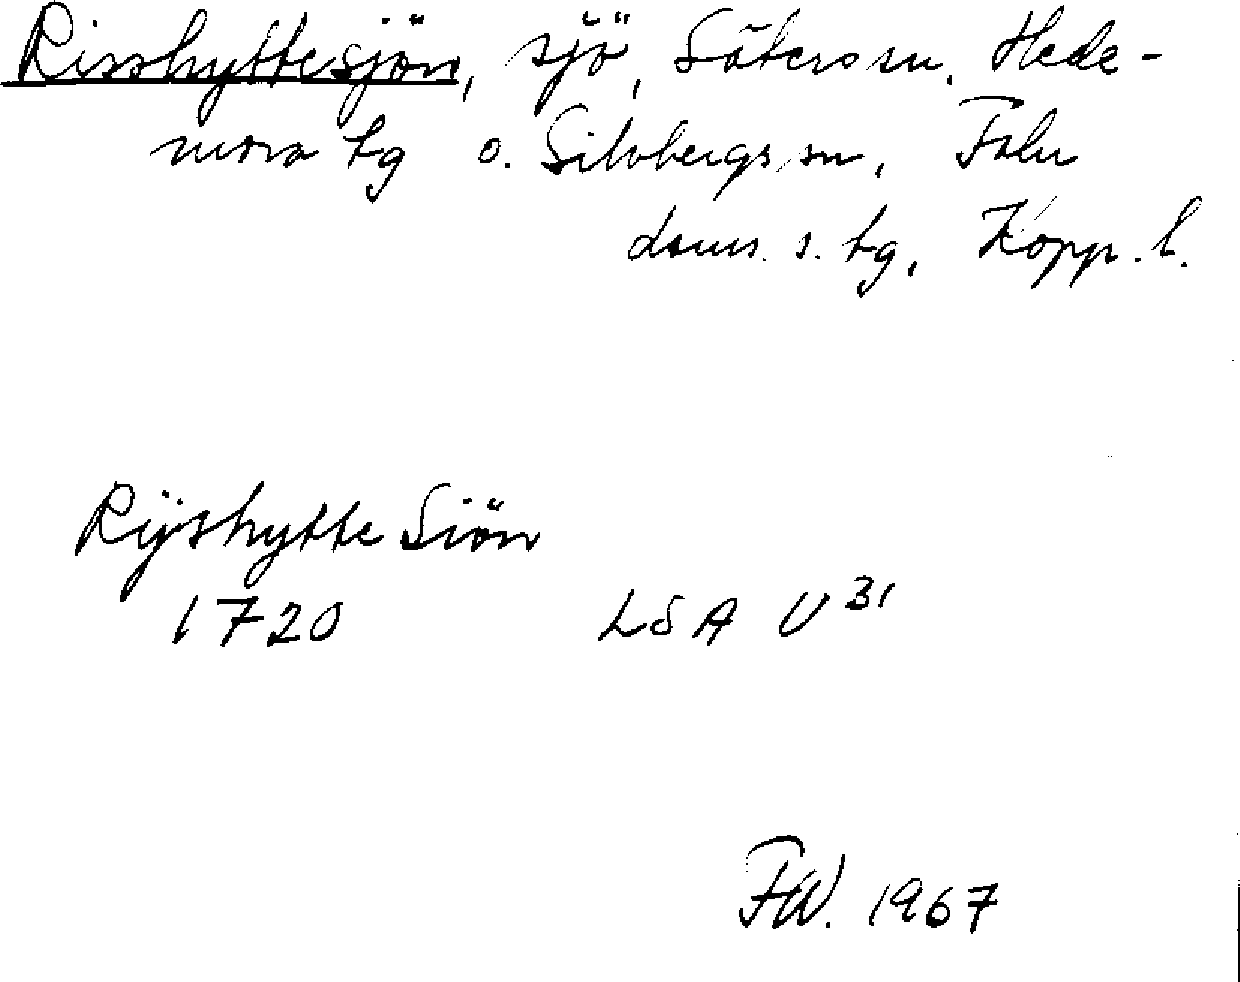 Risshyttesjön, sjö, Säters sn, Hede-
mora tg o. Silvbergs sn, Falu
doms. s. tg, Kopp. l.
Rÿshytte Siön
1720 LSA U 31
FW. 1967